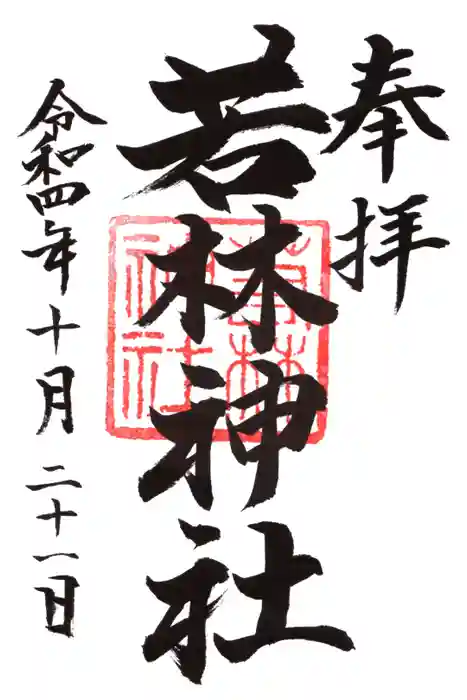 奉拝
若林神社
若林神社
令和四年十月二十一日